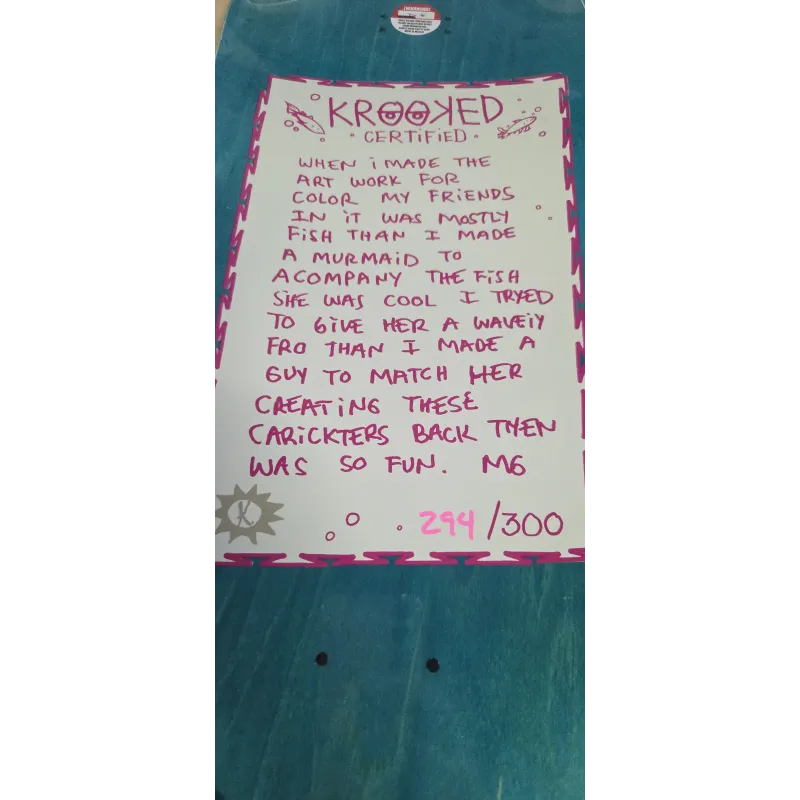 KROOKED
CERTiFiED
WHEN i MADE THE
ART WORK FOR
COLOR MY FRiENDS
IN iT WAS MOSTLY
FiSH THAN I MADE
A MURMAiD TO
ACOMPANY THE FiSH
SHE WAS COOL I TRYED
TO GiVE HER A WAVEiY
FRO THAN I MADE A
GUY TO MATCH HER
CREATiNG THESE
CARiCKTERS BACK THEN
WAS SO FUN. MG
K
294/300